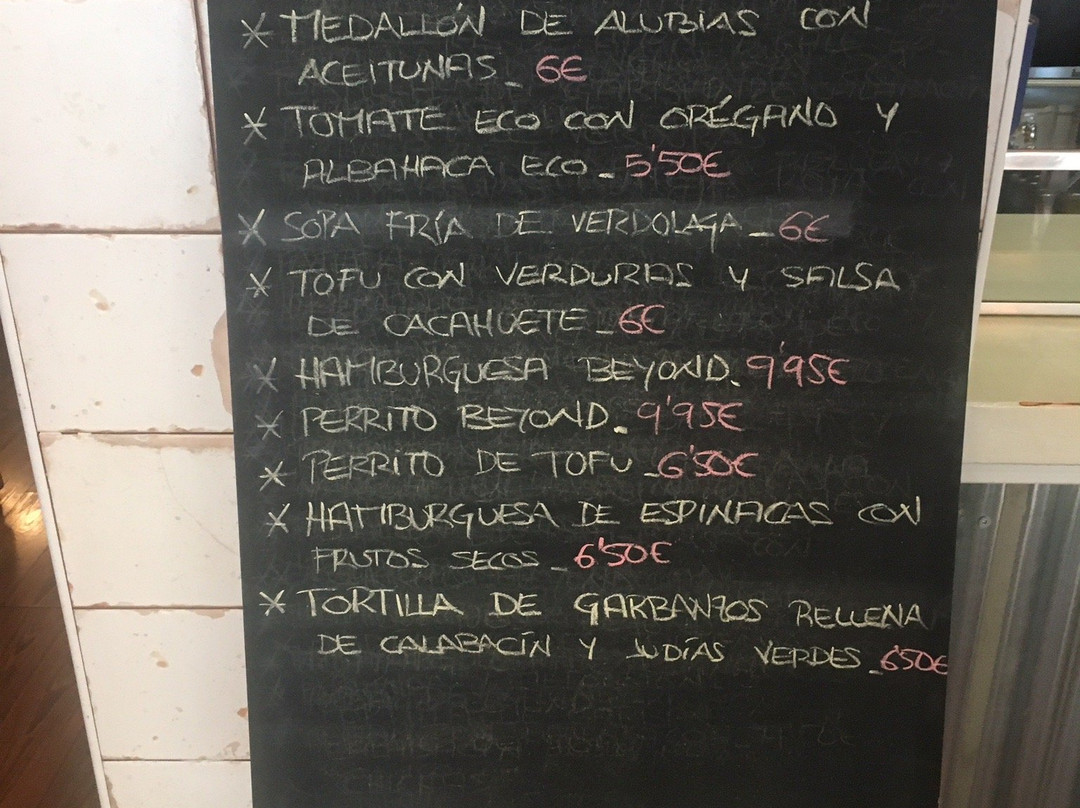 * MEDALLÓN DE ALUBIAS CON
ACEITUNAS_ 6€
* TOMATE ECO CON ORÉGANO Y
ALBAHACA ECO_ 5'50€
* SOPA FRÍA DE VERDOLAGA_6€
* TOFU CON VERDURAS Y SALSA
DE CACAHUETE_6€
* HAMBURGUESA BEYOND. 9'95€
* PERRITO BEYOND. 9'95€
* PERRITO DE TOFU_6'50€
* HAMBURGUESA DE ESPINACAS CON
FRUTOS SECOS_ 6'50€
* TORTILLA DE GARBANZOS RELLENA
DE CALABACÍN Y JUDÍAS VERDES_6'50€